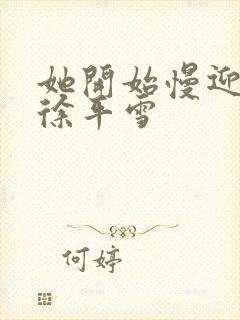 她開始慢迎
徐平雪
何婷